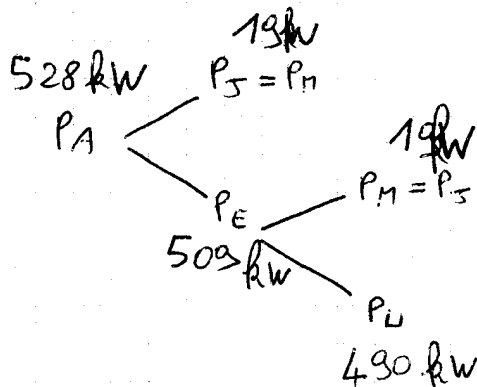 19kW
528kW
P_J = P_M
P_A
19kW
P_M = P_J
P_E
509kW
P_U
490kW